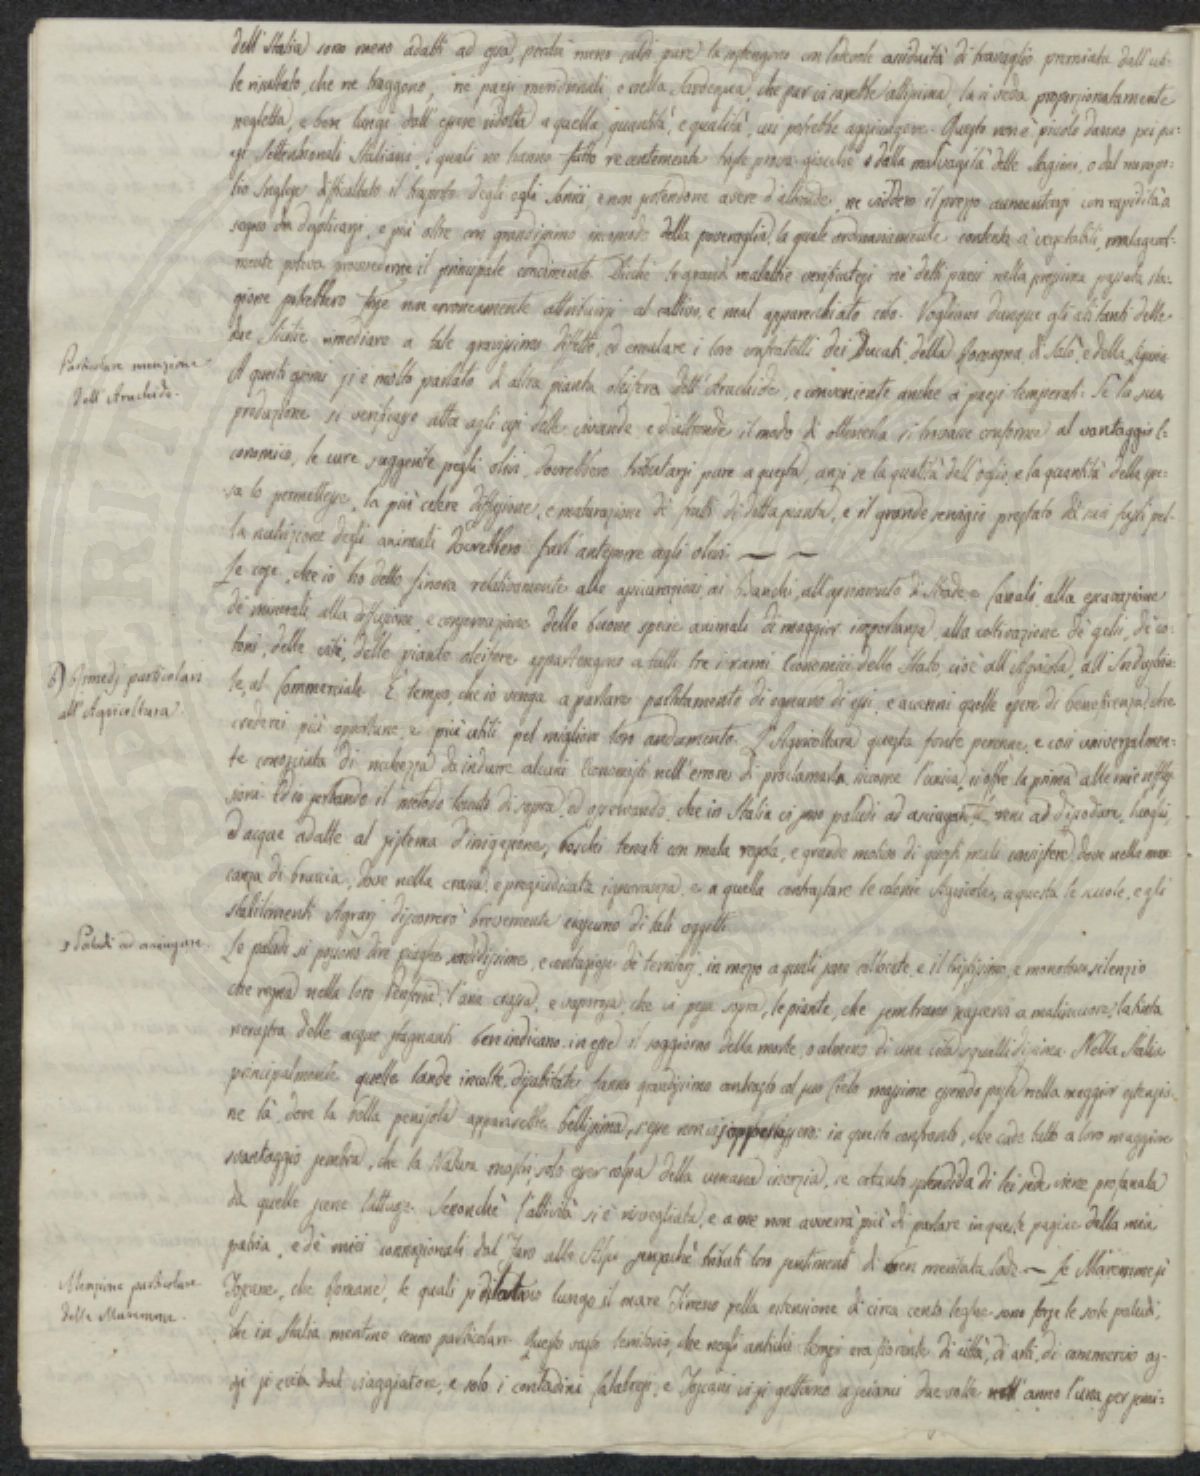 dell'Italia sono meno adatti ad essa, perchè meno caldi pure la sostengono con solerte assiduità di travaglio premiata dall'uti-
le risultato, che ne traggono, ne' paesi meridionali, e nella Sardegna, che pur vi sarebbe attissima, la si veda proporzionatamente
negletta, e bene lungi dall'essere ridotta a quella quantità, e qualità, cui potrebbe aggiungere. Questo non è picciolo danno pei pa-
esi Settentrionali Italiani, i quali ne hanno fatto recentemente triste prova giacchè o dalla malvagità delle Stagioni, o dal monopo-
lio Inglese difficoltato il trasporto degli oglj Jonii, e non potendone avere d'altronde, ne viddero il prezzo aumentarsi con rapidità a
segno da duplicarsi, e più oltre con grandissimo incomodo della poveraglia, la quale ordinariamente contenta a' vegetabili, malagevol-
mente poteva provvederne il principale condimento. Sicchè le grandi malattie verificatesi ne' detti paesi nella prossima passata sta-
gione potrebbero forse non erroneamente attribuirsi al cattivo, e mal apparecchiato cibo. Vogliano dunque gli abitanti delle
due Sicilie rimediare a tale gravissimo difetto, ed emulare i loro confratelli dei Ducati, della Romagna, di Salò, e della Liguria
Particolare menzione
dell'Arachide.
A questi giorni si è molto parlato di altra pianta oleifera dell'Arachide, e conveniente anche a paesi temperati. Se la sua
produzione si verificasse atta agli usi delle vivande, e d'altronde il modo di ottenerla si trovasse conforme al vantaggio E-
conomico, le cure suggerite pegli olivi, dovrebbero tributarsi pure a questa, anzi se la qualità dell'oglio, e la quantità della spe-
sa lo permettesse, la più celere diffusione, e maturazione di frutti di detta pianta, e il grande servigio prestato da' suoi fusti pel-
la nutrizione degli animali dovrebbero farl'anteporre agli olivi. — —
Le cose, che io ho detto finora relativamente alle assicurazioni, ai Banchi, all'aprimento di Strade e Canali alla escavazione
de' minerali, alla diffusione, e conservazione delle buone specie animali di maggior importanza, alla coltivazione de' gelsi, de' co-
toni, delle viti, delle piante oleifere appartengono a tutti tre i rami Economici dello Stato, cioè all'Agricola, all'Industria-
B) Rimedj particolari
all'Agricoltura.
le, al Commerciale. È tempo, che io venga a parlare partitamente di ognuno di essi, e accenni quelle opere di beneficenza, che
crederei più opportune, e più utili pel migliore loro andamento. L'Agricoltura questa fonte perenne, e così universalmen-
te conosciuta di ricchezza da indurre alcuni Economisti nell'errore di proclamarla siccome l'unica, si offre la prima alle mie rifles-
sioni. Ed io serbando il metodo tenuto di sopra, ed osservando, che in Italia vi sono paludi ad asciugarsi, terreni ad dissodare, luoghi,
ed acque adatte al sistema d'irrigazione, boschi tenuti con mala regola, e grande motivo di questi mali consistere dove nella man-
canza di braccia, dove nella crassa, e pregiudicata ignoranza, e a quella contrastare le colonie Agricole, a questa le scuole, e gli
stabilimenti Agrarj discorrerò brevemente ciascuno di tali oggetti.
1 Paludi ad asciugare.
Le paludi si possono dire piaghe sordidissime, e contagiose de' territorj, in mezzo a quali sono collocate, e il tristissimo, e monotono silenzio
che regna nella loro l'aria crassa, e vaporosa, che vi pesa sopra, le piante, che sembrano nascervi a malincuore, la tinta
nerastra delle acque stagnanti ben indicano in esse il soggiorno della morte, o almeno di una vita squallidissima. Nella Italia
principalmente quelle lande incolte, disabitate fanno grandissimo contrasto col suo Cielo massime essendo poste nella maggior estensio-
ne là, dove la bella penisola apparirebbe bellissima, s'esse non vi si opponessero: in questo confronto, che cade tutto a loro maggiore
svantaggio sembra, che la Natura mostri, solo esser colpa della umana inerzia, se cotanto splendida di lei sede viene profanata
da quelle scene luttuose. Sennonchè l'attività si è risvegliata, e a me non avverrà più di parlare in queste pagine della mia
patria, e de' miei connazionali dal Faro alle Alpi senzachè tributi loro sentimenti di ben meritata lode. — Le Maremme sì
Menzione particolare
delle Maremme.
Toscane, che Romane, le quali si dilatano lungo il mare Tirreno pella estensione di circa cento leghe sono forse le sole paludi,
che in Italia meritino cenno particolare. Questo vasto territorio, che negli antichi tempi era fiorente di città, di arti, di commercio og-
gi si evita dal viaggiatore, e solo i contadini Calabresi, e Toscani vi si gettano a sciami due volte nell'anno l'una per semi-